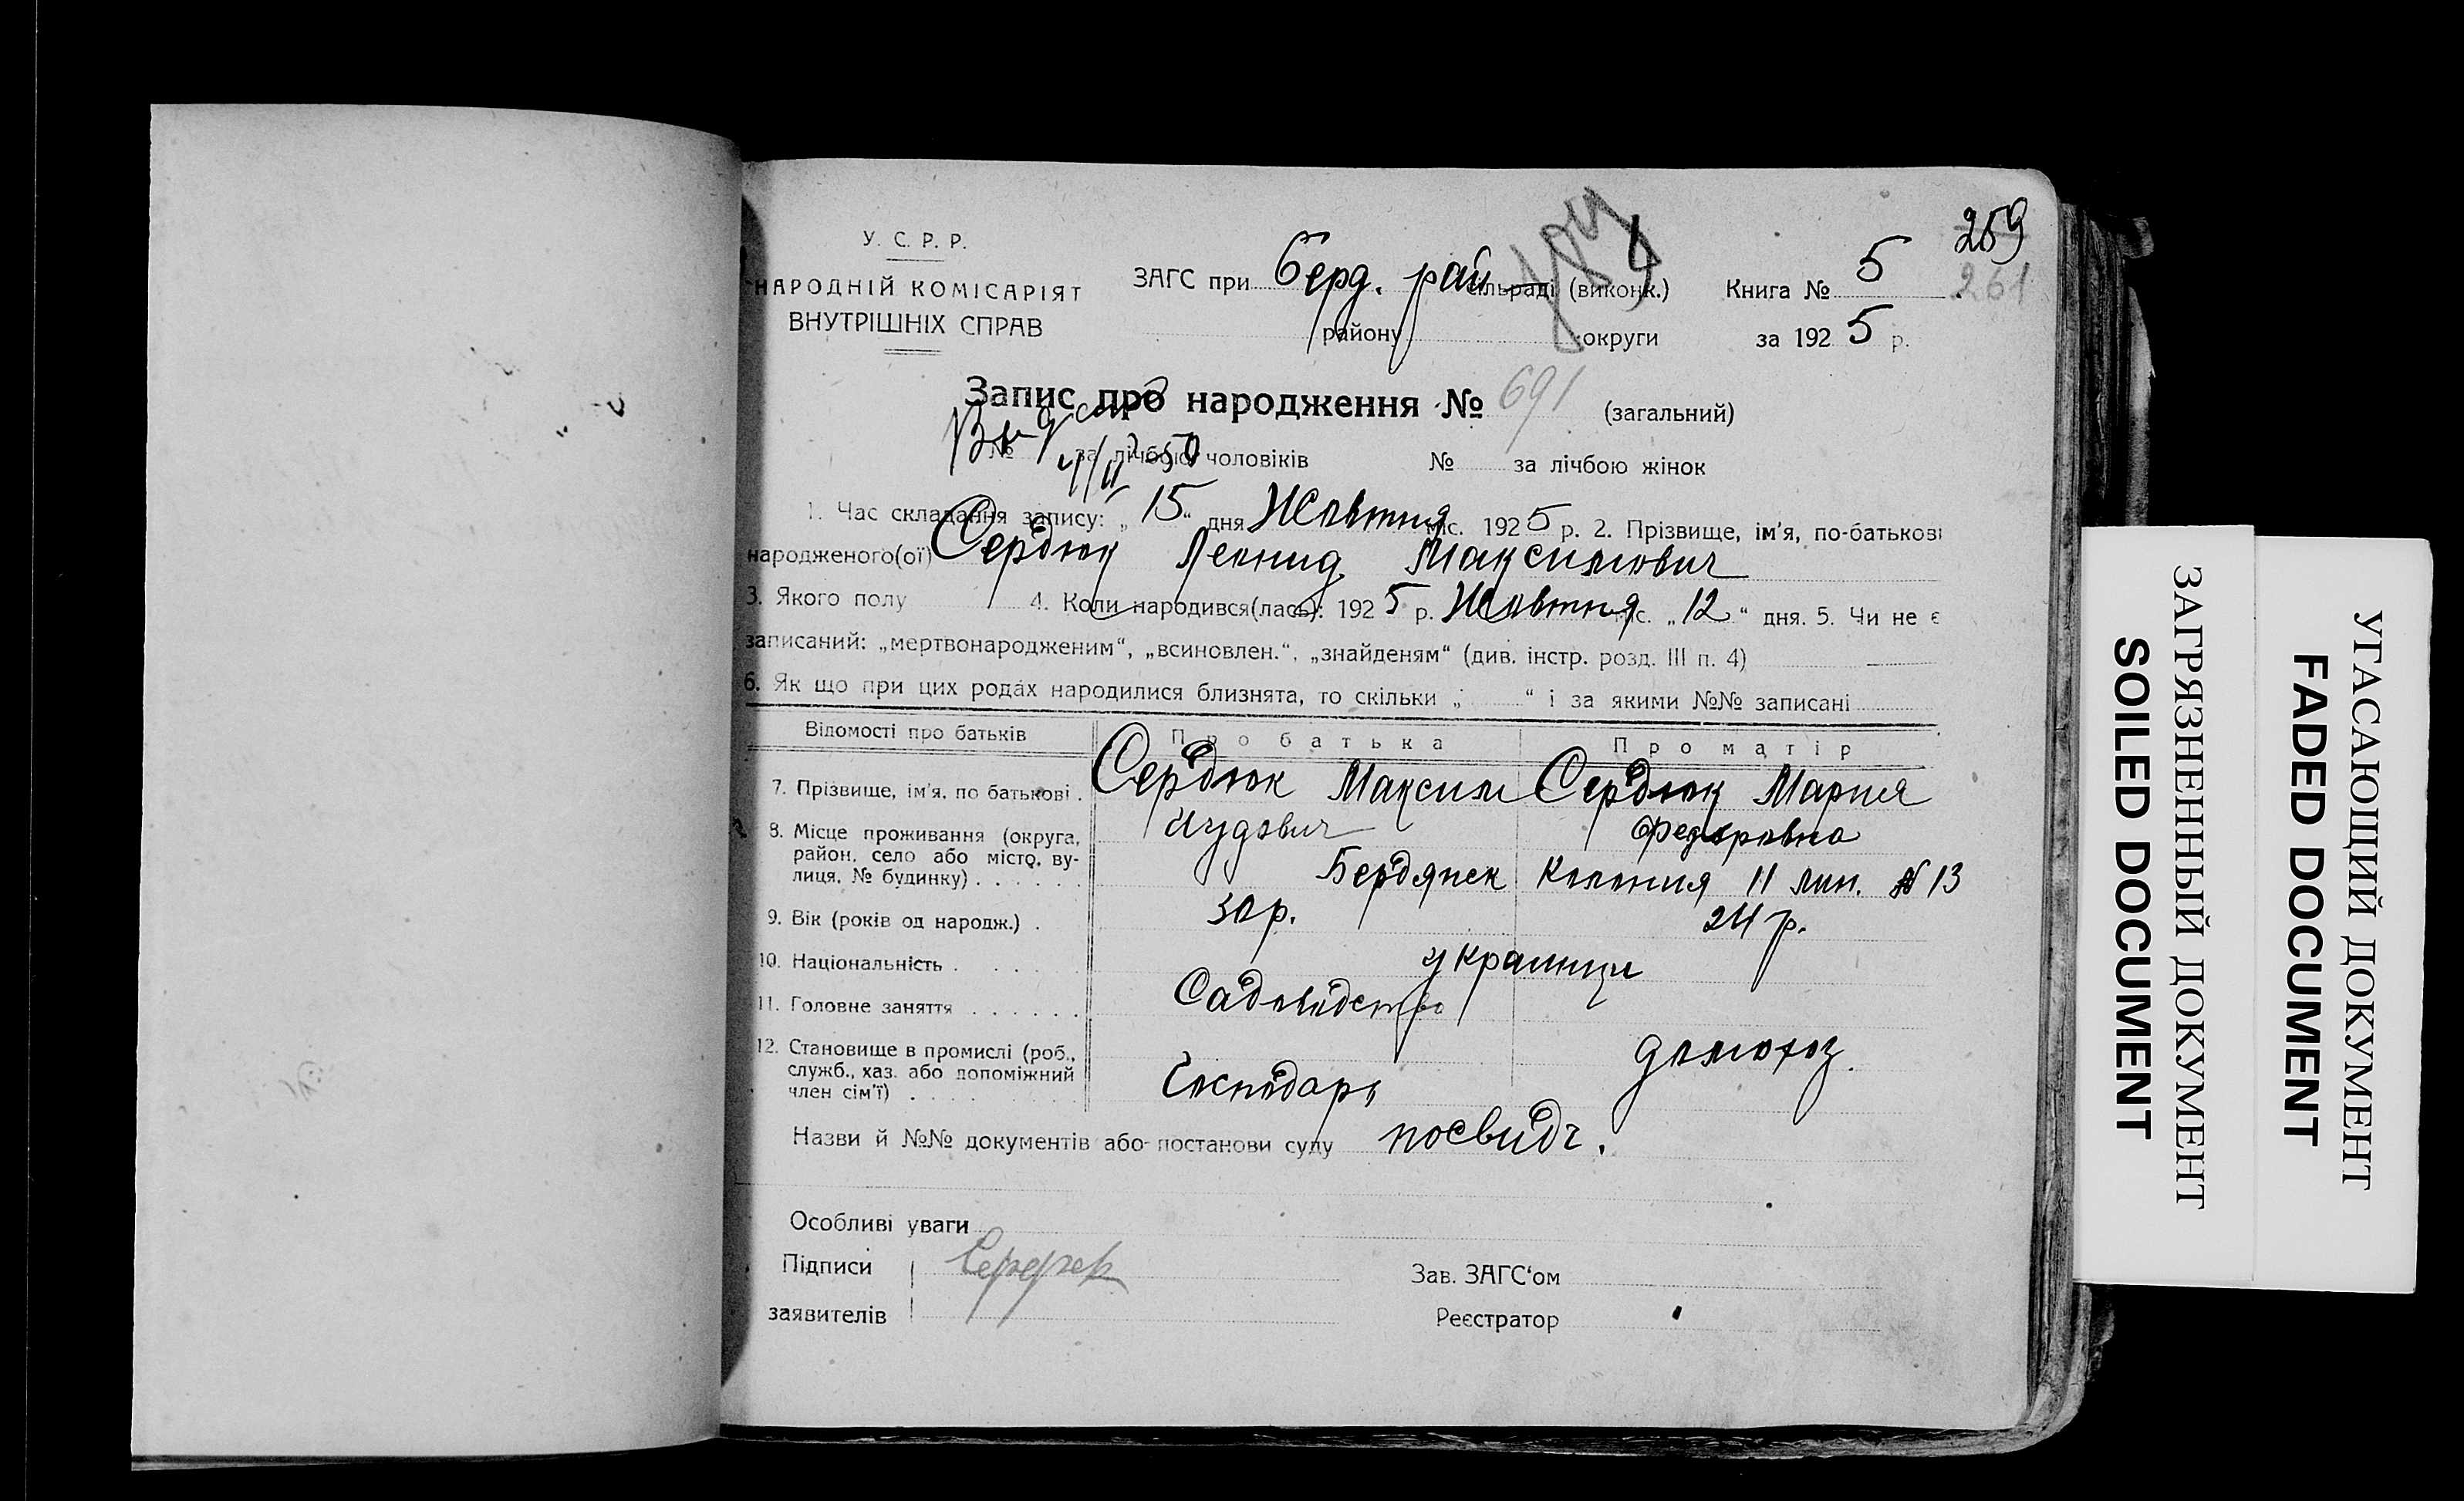 259
261
У. С. Р. Р.
НАРОДНІЙ КОМІСАРІЯТ
ВНУТРІШНІХ СПРАВ
ЗАГС при Берд. рай сільраді (виконк.) Книга № 5
району округи за 1925 р.
Запис про народження № 691 (загальний)
№ за лічбою чоловіків № за лічбою жінок
1. Час складання запису: „15“ дня Жовтня міс. 1925 р. 2. Прізвище, ім'я, по-батькові
народженого(ої) Сердюк Леонид Максимович
3. Якого полу 4. Коли народився(лась): 1925 р. Жовтня міс. „12“ дня. 5. Чи не є
записаний: „мертвонародженим“, „всиновлен.“, „знайденям“ (див. інстр. розд. III п. 4)
6. Як що при цих родах народилися близнята, то скільки „ “ і за якими №№ записані
Відомості про батьків Про батька Про матір
7. Прізвище, ім'я, по батькові . Сердюк Максим Сердюк Мария
Федоровна
8. Місце проживання (округа,
район, село або місто, ву-
лиця, № будинку) . . . . . . Бердянск Колония 11 лин. № 13
9. Вік (років од народж.) . 30 р. 24 р.
10. Національність . . . . . українци
11. Головне заняття . . . . . . Садоводство
12. Становище в промислі (роб.,
служб., хаз. або допоміжний
член сім'ї) . . . . . . . . . Господарь домохоз.
Назви й №№ документів або постанови суду посвидч.
Особливі уваги
Підписи
заявителів
Зав. ЗАГС'ом
Реєстратор
ЗАГРЯЗНЕННЫЙ ДОКУМЕНТ
SOILED DOCUMENT
УГАСАЮЩИЙ ДОКУМЕНТ
FADED DOCUMENT